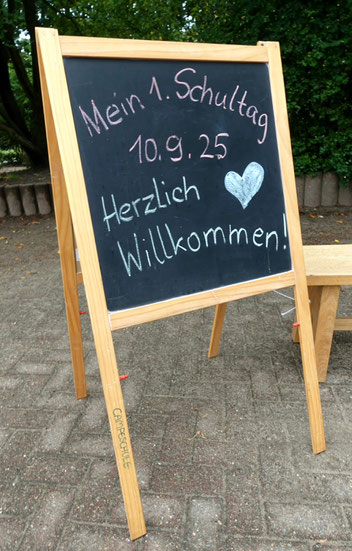 Mein 1. Schultag
10.9.25
Herzlich
Willkommen!
CAMPESCHULE